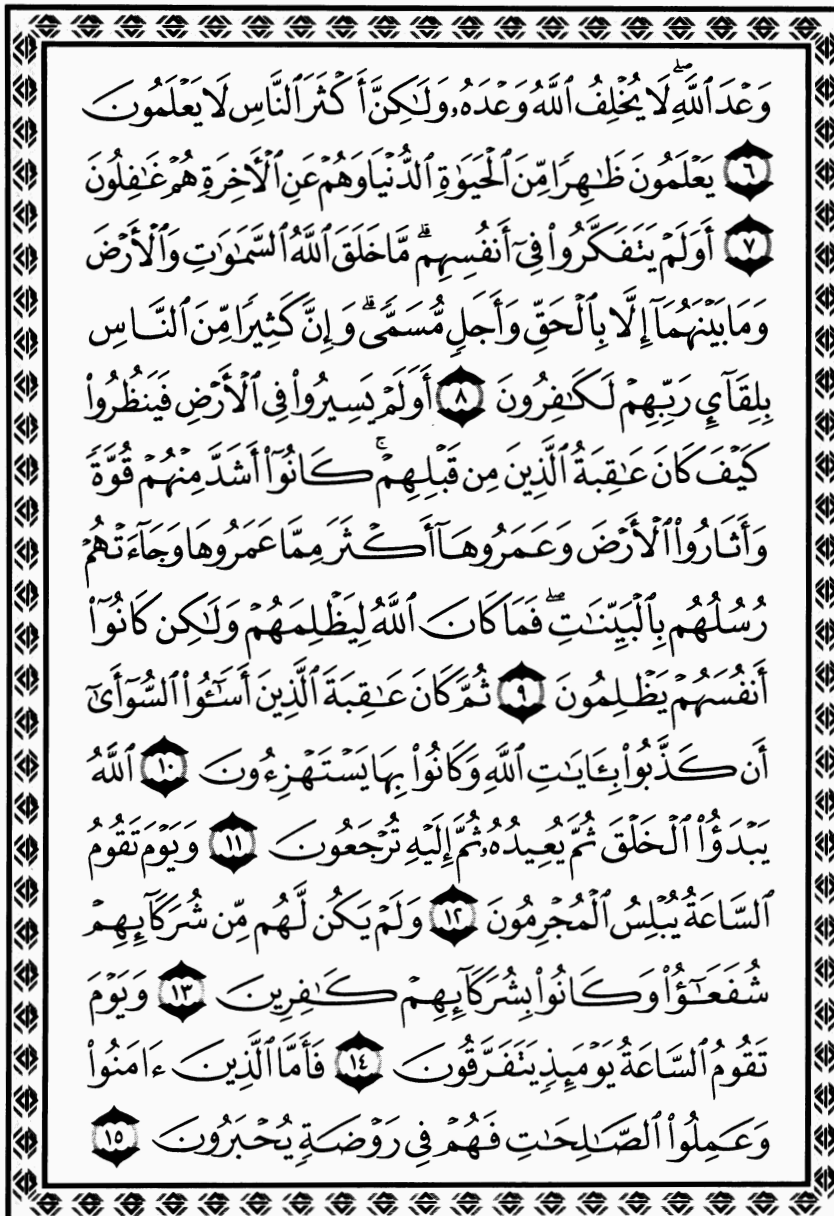 وَعْدَ ٱللَّهِ ۖ لَا يُخْلِفُ ٱللَّهُ وَعْدَهُۥ وَلَٰكِنَّ أَكْثَرَ ٱلنَّاسِ لَا يَعْلَمُونَ
٦ يَعْلَمُونَ ظَٰهِرًا مِّنَ ٱلْحَيَوٰةِ ٱلدُّنْيَا وَهُمْ عَنِ ٱلْأَخِرَةِ هُمْ غَٰفِلُونَ
٧ أَوَلَمْ يَتَفَكَّرُوا۟ فِىٓ أَنفُسِهِم ۗ مَّا خَلَقَ ٱللَّهُ ٱلسَّمَٰوَٰتِ وَٱلْأَرْضَ
وَمَا بَيْنَهُمَآ إِلَّا بِٱلْحَقِّ وَأَجَلٍ مُّسَمًّى ۗ وَإِنَّ كَثِيرًا مِّنَ ٱلنَّاسِ
بِلِقَآئِ رَبِّهِمْ لَكَٰفِرُونَ ٨ أَوَلَمْ يَسِيرُوا۟ فِى ٱلْأَرْضِ فَيَنظُرُوا۟
كَيْفَ كَانَ عَٰقِبَةُ ٱلَّذِينَ مِن قَبْلِهِمْ ۚ كَانُوٓا۟ أَشَدَّ مِنْهُمْ قُوَّةً
وَأَثَارُوا۟ ٱلْأَرْضَ وَعَمَرُوهَآ أَكْثَرَ مِمَّا عَمَرُوهَا وَجَآءَتْهُمْ
رُسُلُهُم بِٱلْبَيِّنَٰتِ ۖ فَمَا كَانَ ٱللَّهُ لِيَظْلِمَهُمْ وَلَٰكِن كَانُوٓا۟
أَنفُسَهُمْ يَظْلِمُونَ ٩ ثُمَّ كَانَ عَٰقِبَةَ ٱلَّذِينَ أَسَٰٓـُٔوا۟ ٱلسُّوٓأَىٰٓ
أَن كَذَّبُوا۟ بِـَٔايَٰتِ ٱللَّهِ وَكَانُوا۟ بِهَا يَسْتَهْزِءُونَ ١٠ ٱللَّهُ
يَبْدَؤُا۟ ٱلْخَلْقَ ثُمَّ يُعِيدُهُۥ ثُمَّ إِلَيْهِ تُرْجَعُونَ ١١ وَيَوْمَ تَقُومُ
ٱلسَّاعَةُ يُبْلِسُ ٱلْمُجْرِمُونَ ١٢ وَلَمْ يَكُن لَّهُم مِّن شُرَكَآئِهِمْ
شُفَعَٰٓؤُا۟ وَكَانُوا۟ بِشُرَكَآئِهِمْ كَٰفِرِينَ ١٣ وَيَوْمَ
تَقُومُ ٱلسَّاعَةُ يَوْمَئِذٍ يَتَفَرَّقُونَ ١٤ فَأَمَّا ٱلَّذِينَ ءَامَنُوا۟
وَعَمِلُوا۟ ٱلصَّٰلِحَٰتِ فَهُمْ فِى رَوْضَةٍ يُحْبَرُونَ ١٥